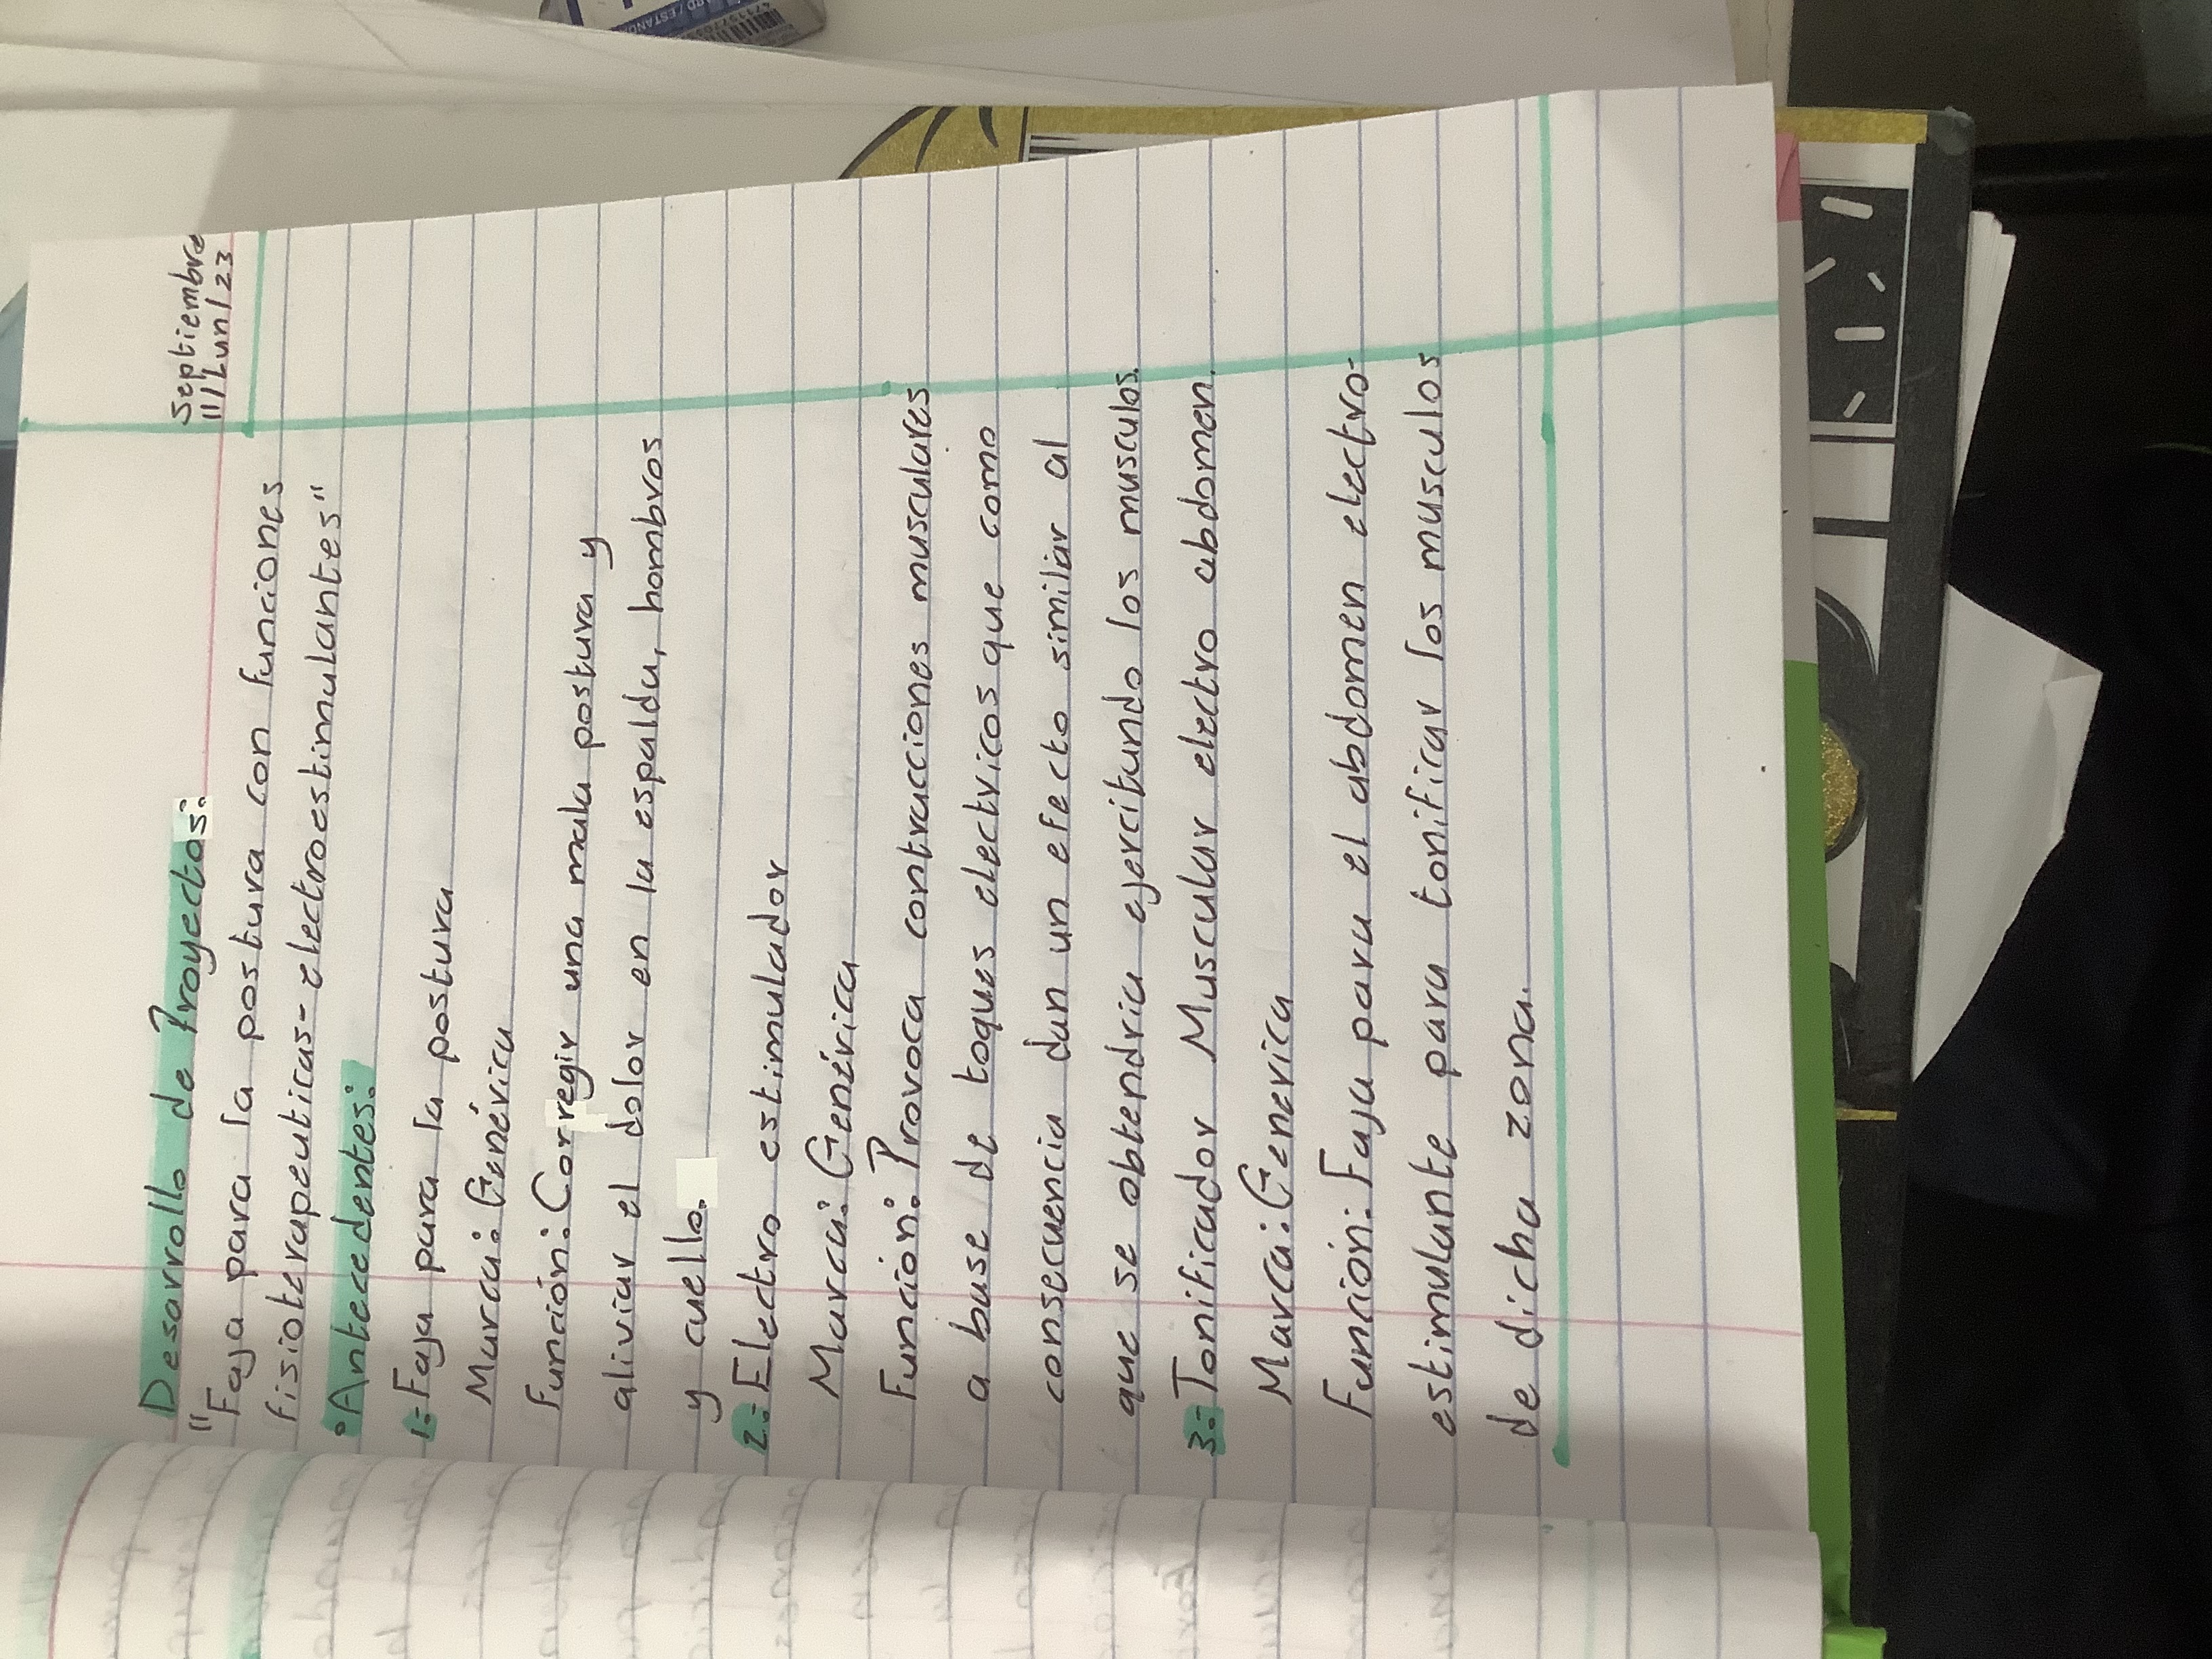 Septiembre
11/Lun/23
Desarrollo de Proyectos:
"Faja para la postura con funciones
fisioterapeuticas-electroestimulantes"
•Antecedentes:
1.- Faja para la postura
Marca: Genérica
Función: Corregir una mala postura y
aliviar el dolor en la espalda, hombros
y cuello.
2.- Electro estimulador
Marca: Genérica
Función: Provoca contracciones musculares
a base de toques electricos que como
consecuencia dan un efecto similar al
que se obtendria ejercitando los musculos.
3.- Tonificador Muscular electro abdomen.
Marca: Generica
Función: Faja para el abdomen electro-
estimulante para tonificar los musculos
de dicha zona.